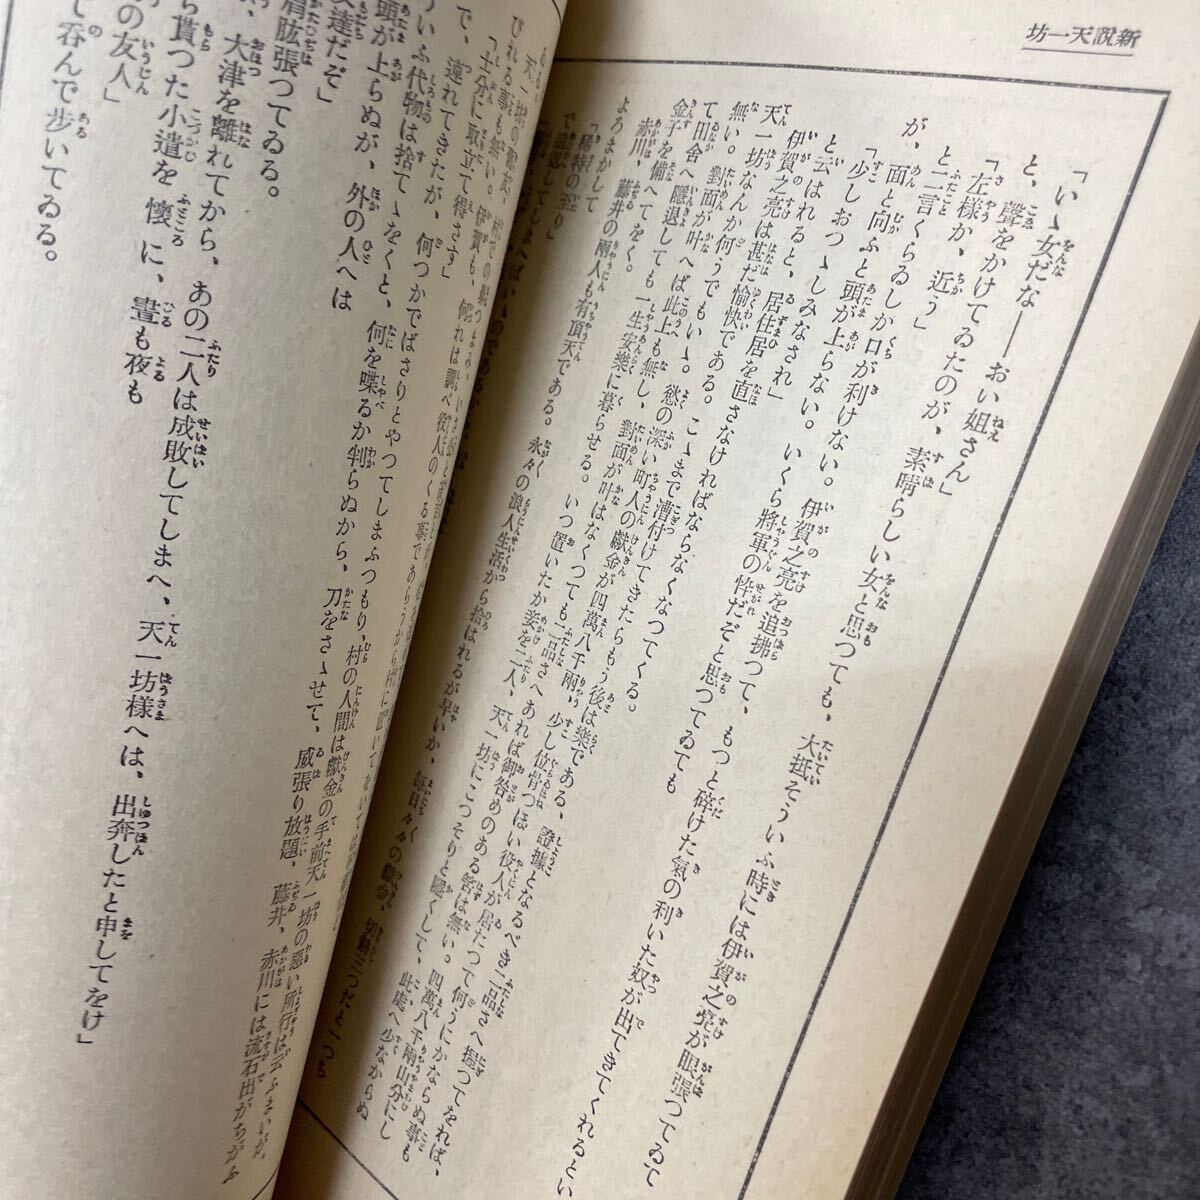 新説天一坊
「いゝ女だな――おい姐さん」
と、聲をかけてゐたのが、素晴らしい女と思つても、大抵そういふ時には伊賀之亮が眼張つてゐて
「左様か、近う」
と二言くらゐしか口が利けない。伊賀之亮を追拂つて、もつと碎けた氣の利いた奴が出てきてくれるとい
が、面と向ふと頭が上らない。いくら將軍の忰だぞと思つてゐても
「少しおつゝしみなされ」
と云はれると、居住居を直さなければならなくなつてくる。
伊賀之亮は甚だ愉快である。こゝまで漕付けてきたらもう後は樂である、證據となるべき二品さへ握つてをれば、
天一坊なんか何うでもいゝ。慾の深い町人の獻金が四萬八千兩、少し位骨つぽい役人が居たつて何うにかならぬ事も
無い。對面が叶へば此上も無し、對面が叶はなくつても二品さへあれば御咎めのある筈は無い。四萬八千兩山分にし
て田舍へ隱退しても一生安樂に暮らせる。いつ置いたか妾を二人、天一坊にこつそりと隱くして、此處へ少なからぬ
金子を備へてをく。
赤川、藤井の兩人も有頂天である。永々の浪人生活から拾はれるが早いか、毎日々々の
よろまかして
「稀特の至り」
で
「士分に取立て得さす」
で、連れてきたが、何つかでばさりとやつてしまふつもり、村の人間は獻金の手前天一坊の惡い所行は云ふまいが、
ういふ代物は捨てゝをくと、何を喋るか判らぬから、刀をさゝせて、威張り放題、藤井、赤川には流石出がちがふ
頭が上らぬが、外の人へは
友達だぞ」
肩肱張つてゐる。
、大津を離れてから、あの二人は成敗してしまへ、天一坊様へは、出奔したと申してをけ」
ら貰つた小遣を懷に、晝も夜も
の友人」
で呑んで歩いてゐる。